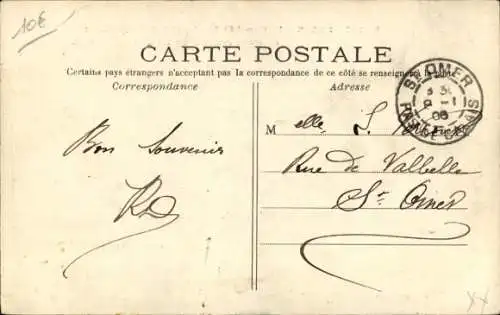 10€
CARTE POSTALE
Certains pays étrangers n'acceptant pas la correspondance de ce côté se renseigner à la
Correspondance
Adresse
ST OMER
PAS-DE-CALAIS
Bon Souvenir
Melle L.
Rue de Valbelle
St Omer